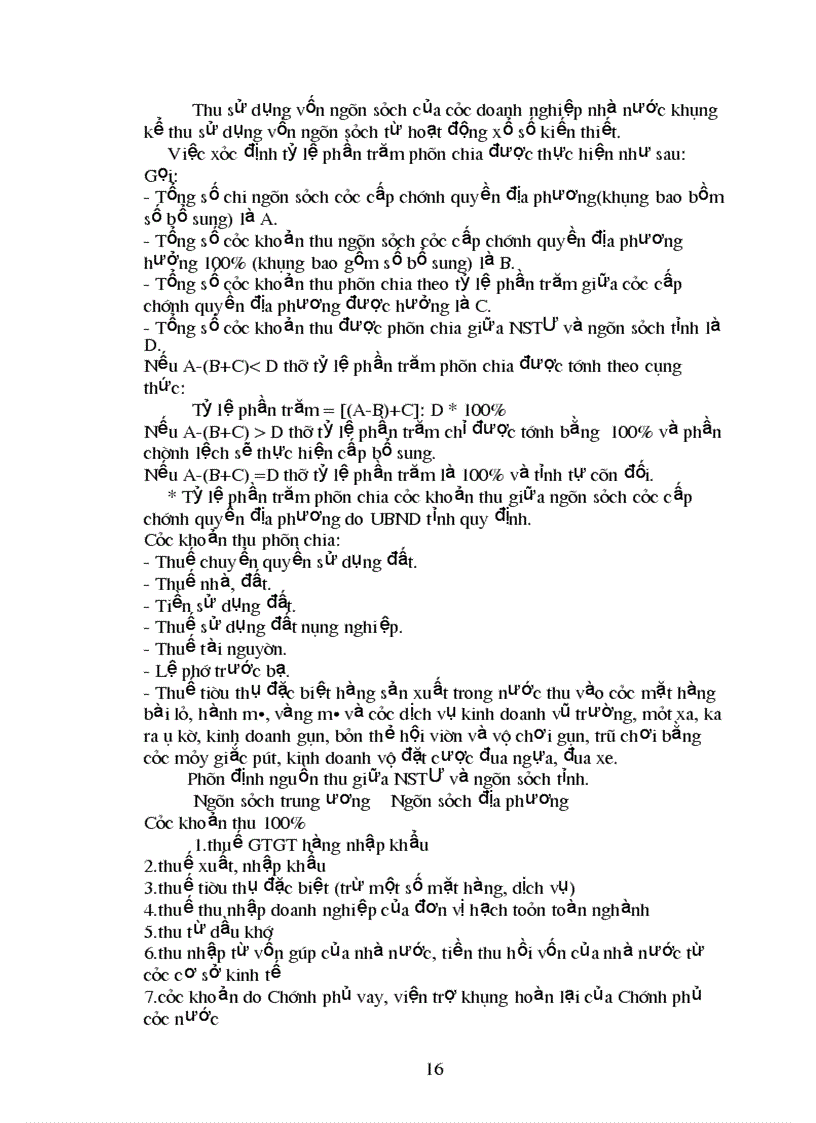 Thu sử dụng vốn ngõn sỏch của cỏc doanh nghiệp nhà nước khụng
kể thu sử dụng vốn ngõn sỏch từ hoạt động xổ số kiến thiết.
Việc xỏc định tỷ lệ phần trăm phõn chia được thực hiện như sau:
Gọi:
- Tổng số chi ngõn sỏch cỏc cấp chớnh quyền địa phương(khụng bao bồm
số bổ sung) là A.
- Tổng số cỏc khoản thu ngõn sỏch cỏc cấp chớnh quyền địa phương
hưởng 100% (khụng bao gồm số bổ sung) là B.
- Tổng số cỏc khoản thu phõn chia theo tỷ lệ phần trăm giữa cỏc cấp
chớnh quyền địa phương được hưởng là C.
- Tổng số cỏc khoản thu được phõn chia giữa NSTƯ và ngõn sỏch tỉnh là
D.
Nếu A-(B+C)< D thỡ tỷ lệ phần trăm phõn chia được tớnh theo cụng
thức:
Tỷ lệ phần trăm = [(A-B)+C]: D * 100%
Nếu A-(B+C) > D thỡ tỷ lệ phần trăm chỉ được tớnh bằng 100% và phần
chờnh lệch sẽ thực hiện cấp bổ sung.
Nếu A-(B+C) =D thỡ tỷ lệ phần trăm là 100% và tỉnh tự cõn đối.
* Tỷ lệ phần trăm phõn chia cỏc khoản thu giữa ngõn sỏch cỏc cấp
chớnh quyền địa phương do UBND tỉnh quy định.
Cỏc khoản thu phõn chia:
- Thuế chuyển quyền sử dụng đất.
- Thuế nhà, đất.
- Tiền sử dụng đất.
- Thuế sử dụng đất nụng nghiệp.
- Thuế tài nguyờn.
- Lệ phớ trước bạ.
- Thuế tiờu thụ đặc biệt hàng sản xuất trong nước thu vào cỏc mặt hàng
bài lỏ, hành m•, vàng m• và cỏc dịch vụ kinh doanh vũ trường, mỏt xa, ka
ra ụ kờ, kinh doanh gụn, bỏn thẻ hội viờn và vộ chơi gụn, trũ chơi bằng
cỏc mỏy giắc pút, kinh doanh vộ đặt cược đua ngựa, đua xe.
Phõn định nguồn thu giữa NSTƯ và ngõn sỏch tỉnh.
Ngõn sỏch trung ương Ngõn sỏch địa phương
Cỏc khoản thu 100%
1.thuế GTGT hàng nhập khẩu
2.thuế xuất, nhập khẩu
3.thuế tiờu thụ đặc biệt (trừ một số mặt hàng, dịch vụ)
4.thuế thu nhập doanh nghiệp của đơn vị hạch toỏn toàn nghành
5.thu từ dầu khớ
6.thu nhập từ vốn gúp của nhà nước, tiền thu hồi vốn của nhà nước từ
cỏc cơ sở kinh tế
7.cỏc khoản do Chớnh phủ vay, viện trợ khụng hoàn lại của Chớnh phủ
cỏc nước
16